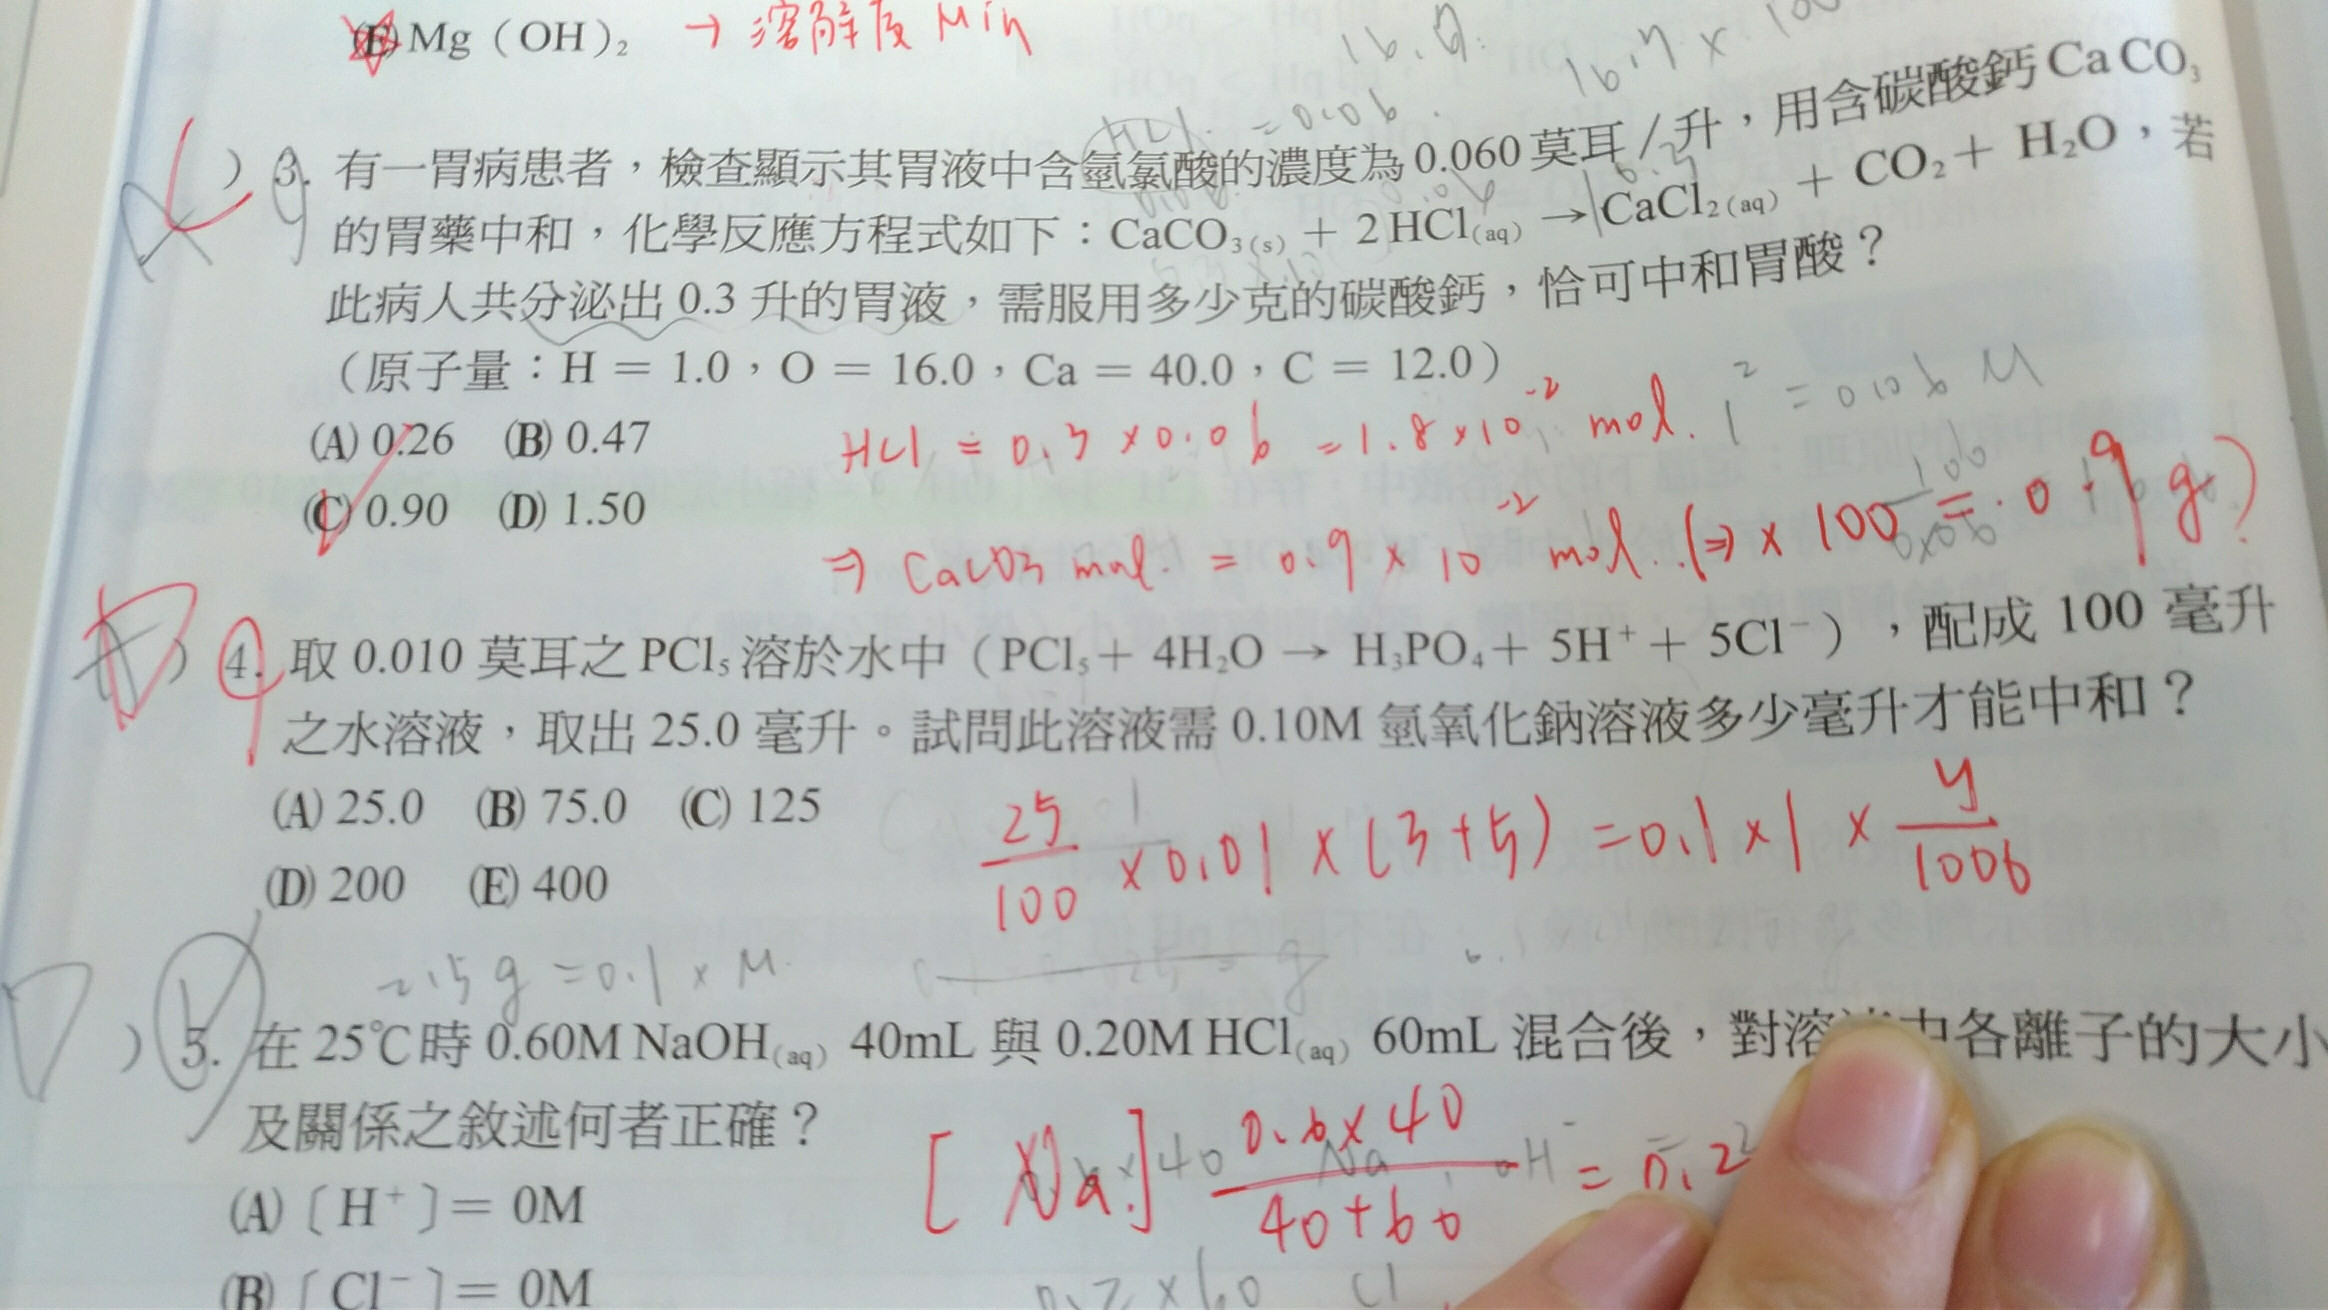 (E) Mg（OH）₂ → 溶解度 Min
16.7 × 100
HCl = 0.06
）3. 有一胃病患者，檢查顯示其胃液中含氫氯酸的濃度為 0.060 莫耳/升，用含碳酸鈣 CaCO₃
的胃藥中和，化學反應方程式如下：CaCO₃(s) + 2HCl(aq) → CaCl₂(aq) + CO₂ + H₂O，若
此病人共分泌出 0.3 升的胃液，需服用多少克的碳酸鈣，恰可中和胃酸？
（原子量：H = 1.0，O = 16.0，Ca = 40.0，C = 12.0）
(A) 0.26 (B) 0.47
(C) 0.90 (D) 1.50
HCl = 0.3 × 0.06 = 1.8 × 10⁻² mol.
⇒ CaCO3 mol. = 0.9 × 10⁻² mol. (⇒ × 100 = 0.9 g)
）4. 取 0.010 莫耳之 PCl₅ 溶於水中（PCl₅ + 4H₂O → H₃PO₄ + 5H⁺ + 5Cl⁻），配成 100 毫升
之水溶液，取出 25.0 毫升。試問此溶液需 0.10M 氫氧化鈉溶液多少毫升才能中和？
(A) 25.0 (B) 75.0 (C) 125
(D) 200 (E) 400
25/100 × 0.01 × (3+5) = 0.1 × 1 × y/1000
D ）5. 在 25℃時 0.60M NaOH(aq) 40mL 與 0.20M HCl(aq) 60mL 混合後，對溶 中各離子的大小
及關係之敘述何者正確？
[Na] 0.6×40/40+60 = 0.2
(A)〔H⁺〕= 0M
(B)〔Cl⁻〕= 0M
0.2×60 Cl